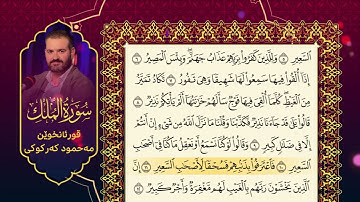 سُورَةُ المُلْك
قورئانخوێن
مەحمود کەرکوکی
ٱلسَّعِيرِ ۝ وَلِلَّذِينَ كَفَرُوا۟ بِرَبِّهِمْ عَذَابُ جَهَنَّمَ ۖ وَبِئْسَ ٱلْمَصِيرُ ۝
إِذَآ أُلْقُوا۟ فِيهَا سَمِعُوا۟ لَهَا شَهِيقًا وَهِىَ تَفُورُ ۝ تَكَادُ تَمَيَّزُ
مِنَ ٱلْغَيْظِ ۖ كُلَّمَآ أُلْقِىَ فِيهَا فَوْجٌ سَأَلَهُمْ خَزَنَتُهَآ أَلَمْ يَأْتِكُمْ نَذِيرٌ ۝
قَالُوا۟ بَلَىٰ قَدْ جَآءَنَا نَذِيرٌ فَكَذَّبْنَا وَقُلْنَا مَا نَزَّلَ ٱللَّهُ مِن شَىْءٍ إِنْ أَنتُمْ
إِلَّا فِى ضَلَٰلٍ كَبِيرٍ ۝ وَقَالُوا۟ لَوْ كُنَّا نَسْمَعُ أَوْ نَعْقِلُ مَا كُنَّا فِىٓ أَصْحَٰبِ
ٱلسَّعِيرِ ۝ فَٱعْتَرَفُوا۟ بِذَنۢبِهِمْ فَسُحْقًا لِّأَصْحَٰبِ ٱلسَّعِيرِ ۝ إِنَّ
ٱلَّذِينَ يَخْشَوْنَ رَبَّهُم بِٱلْغَيْبِ لَهُم مَّغْفِرَةٌ وَأَجْرٌ كَبِيرٌ ۝